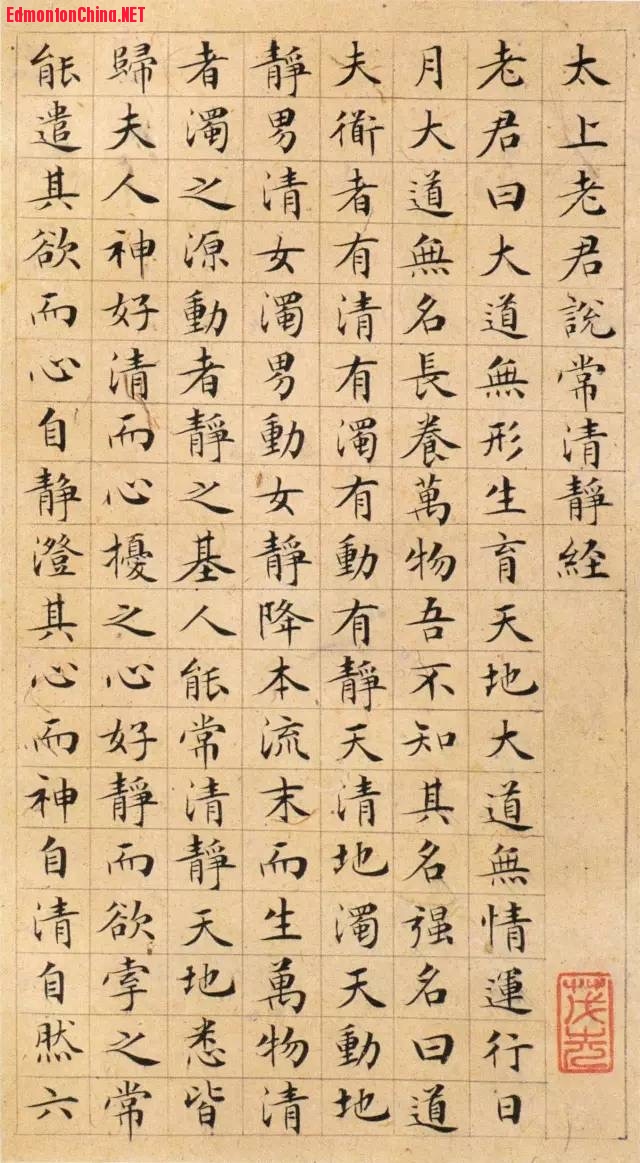 EdmontonChina.NET
太上老君說常清靜経
老君曰大道無形生育天地大道無情運行日
月大道無名長養萬物吾不知其名强名曰道
夫衜者有清有濁有動有靜天清地濁天動地
靜男清女濁男動女靜降本流末而生萬物清
者濁之源動者靜之基人能常清靜天地悉皆
歸夫人神好清而心擾之心好靜而欲牽之常
能遣其欲而心自静澄其心而神自清自然六